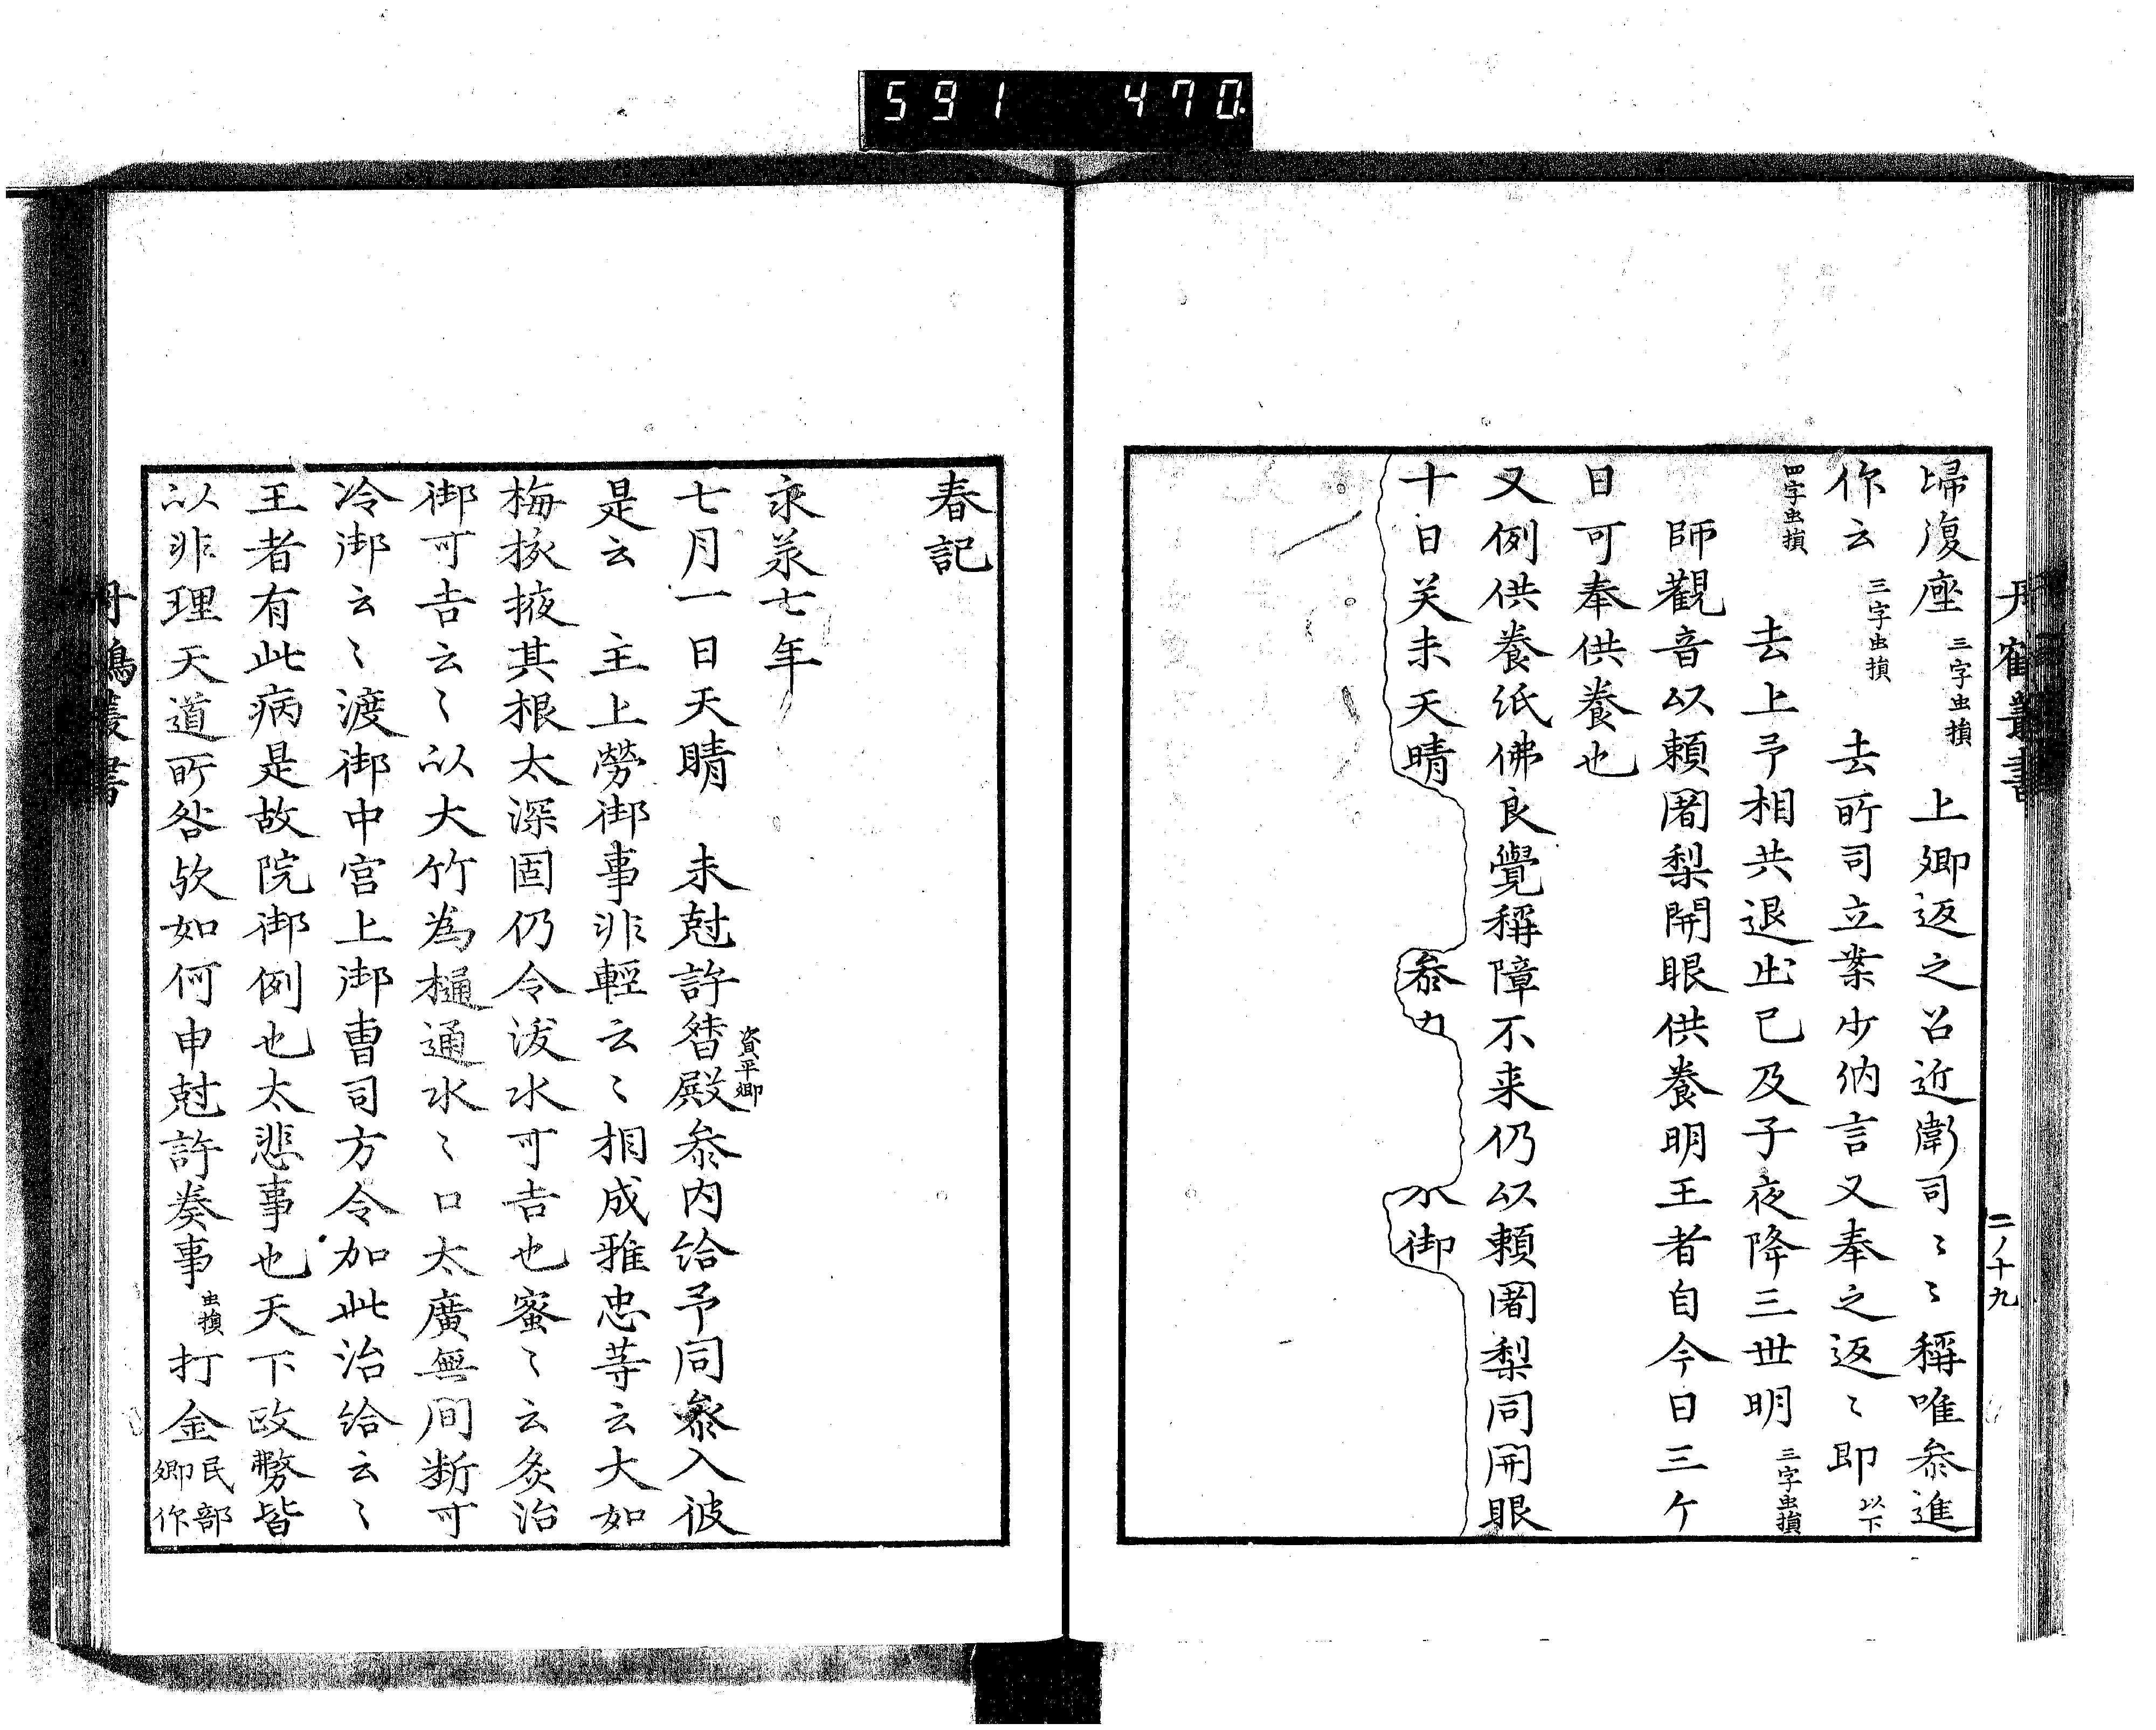 591 470
丹鶴叢書
二ノ十九
帰復座 三字虫損 上卿返之召近衛司〻〻稱唯参進
作云 三字虫損 去所司立案少納言又奉之返〻即 以下
四字虫損 去上予相共退出已及子夜降三世明 三字虫損
師觀音以頼闍梨開眼供養明王者自今日三ケ
日可奉供養也
又例供養紙佛良覺稱障不来仍以頼闍梨同開眼
十日癸未天晴 参 水御
春記
永承七年
七月一日天晴 未尅許督殿資平卿参内給予同参入彼
是云 主上勞御事非輕云〻相成雅忠等云大如
梅掖掖其根太深固仍令沃水可吉也蜜〻云灸治
御可吉云〻以大竹為樋通水〻口太廣無間断可
冷御云〻渡御中宮上御曹司方令加此治給云〻
王者有此病是故院御例也太悲事也天下政務皆
以非理天道所咎欤如何申尅許奏事 虫損 打金 民部卿作
丹鶴叢書